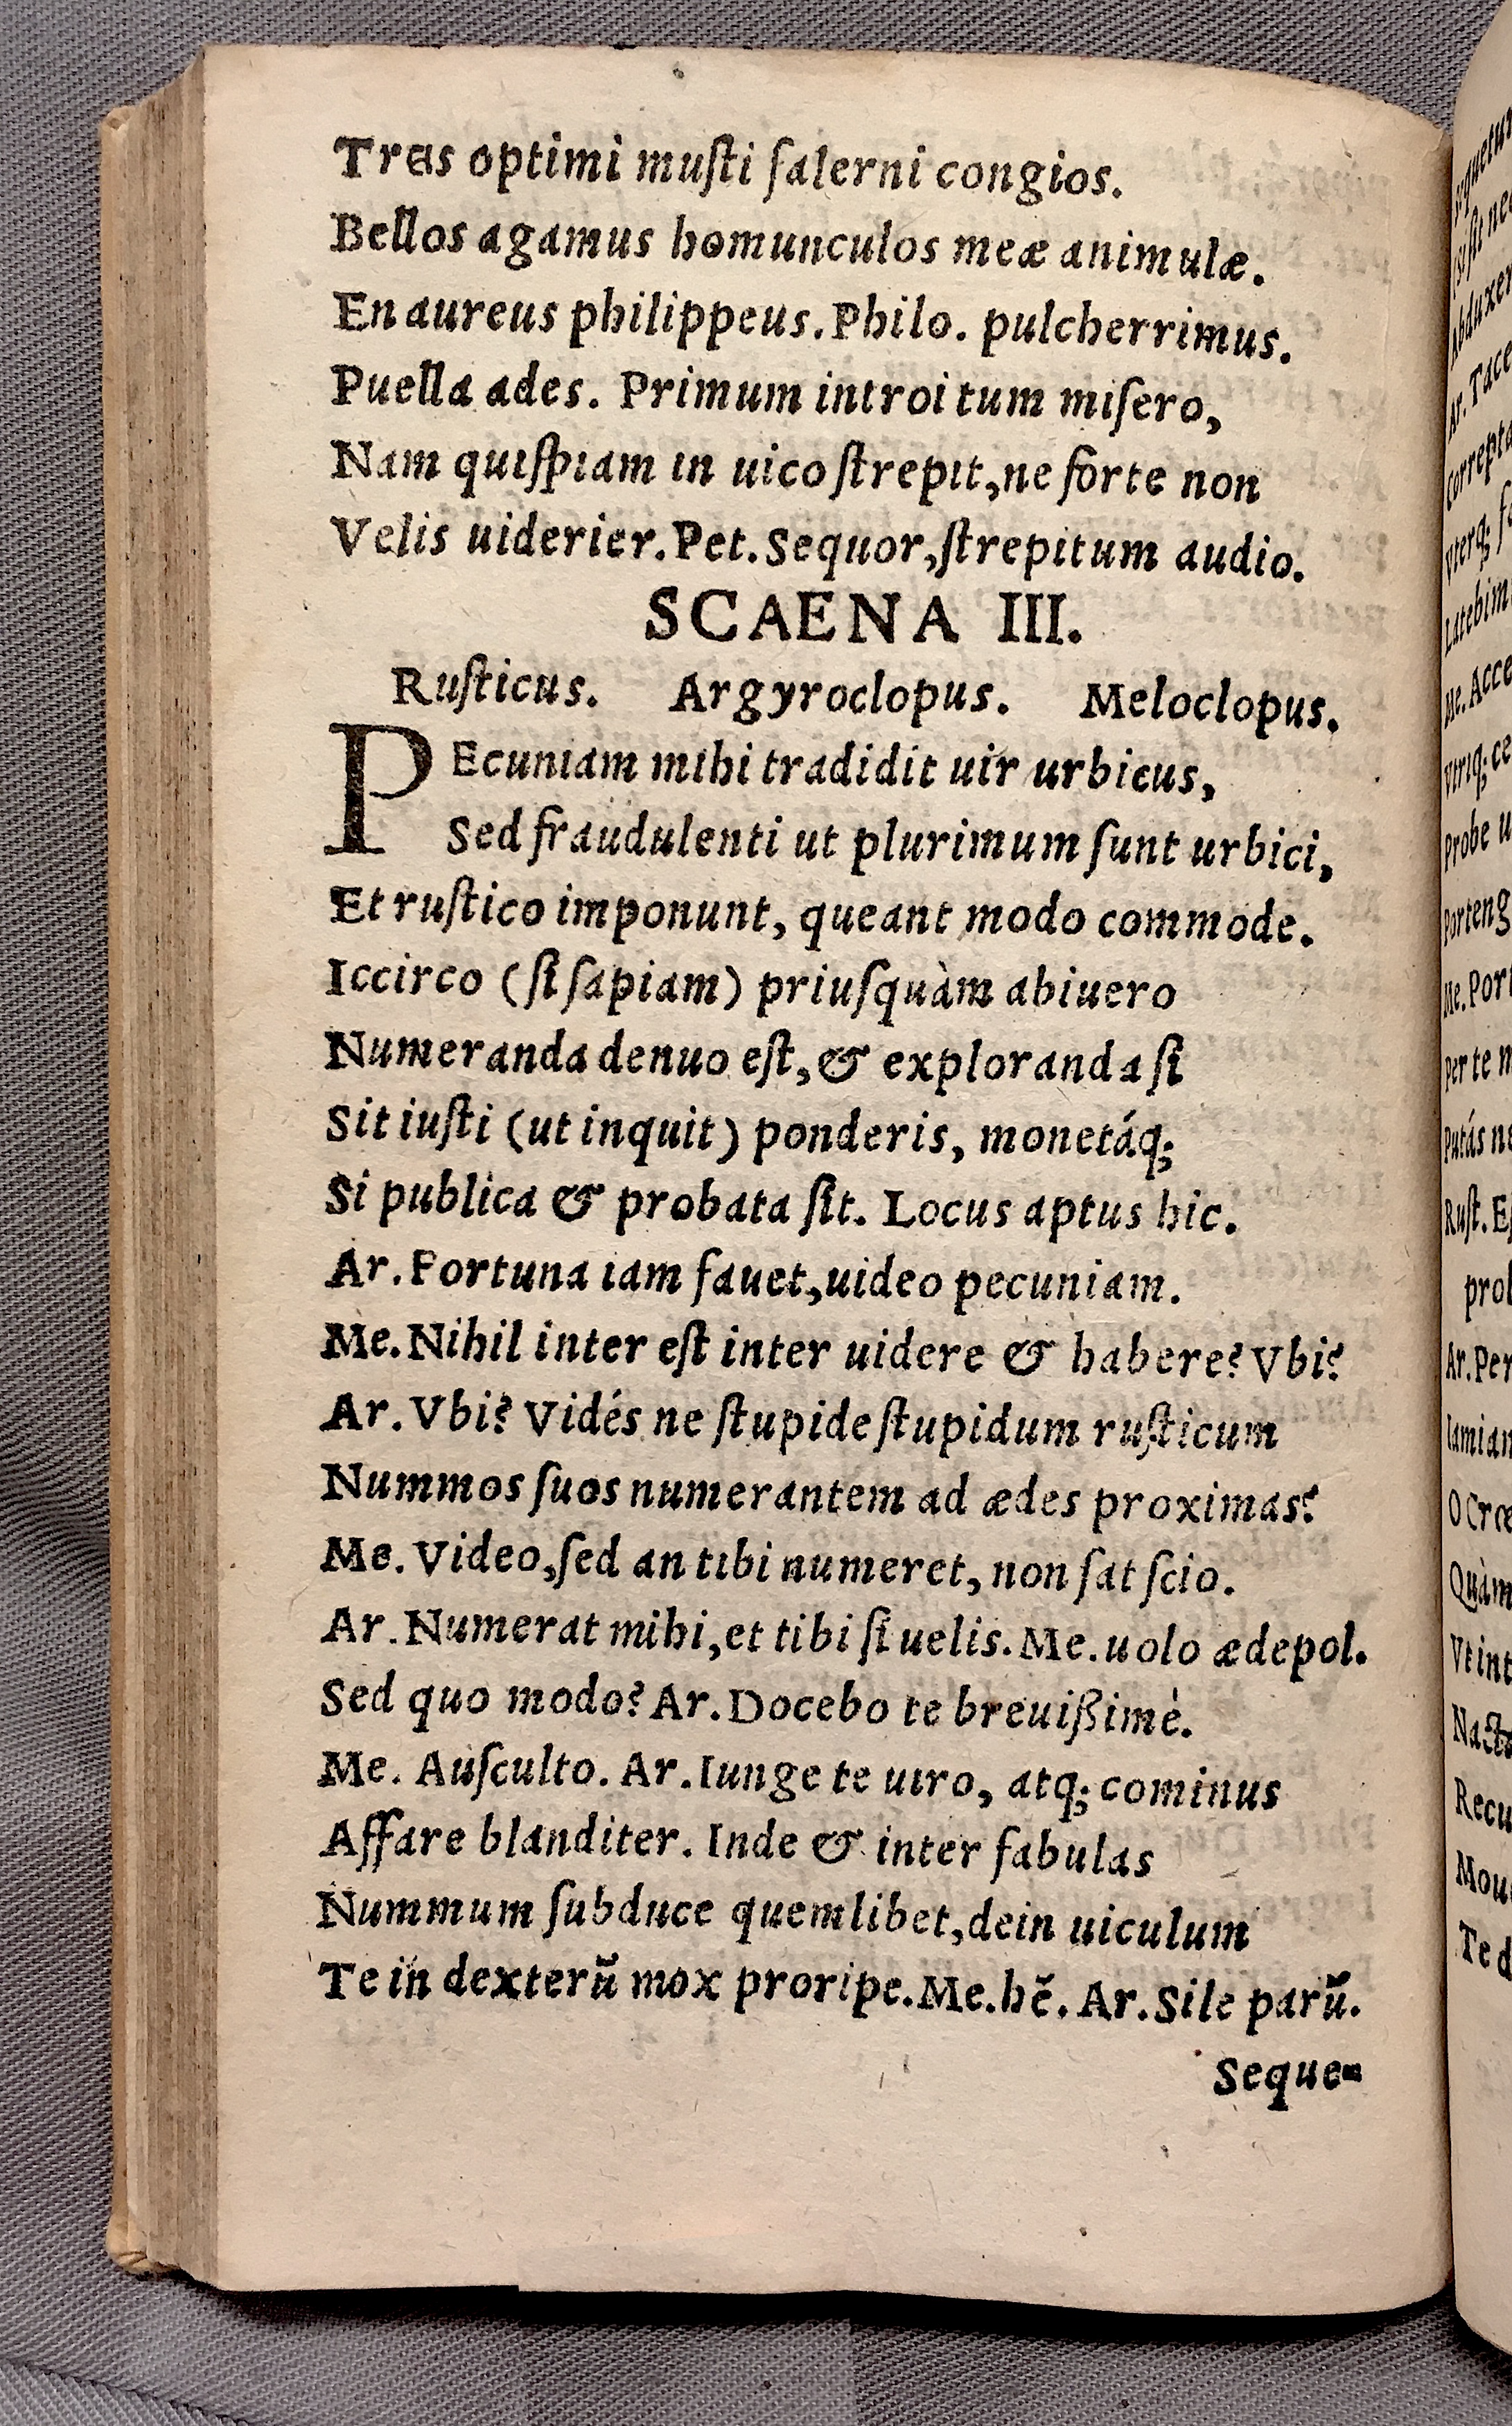 Treis optimi muſti falerni congios.
Bellos agamus homunculos meæ animulæ.
En aureus philippeus. Philo. pulcherrimus.
Puella ades. Primum introitum miſero,
Nam quiſpiam in uico ſtrepit, ne forte non
Velis uiderier. Pet. Sequor, ſtrepitum audio.
SCAENA III.
Ruſticus. Argyroclopus. Meloclopus.
PEcuniam mihi tradidit uir urbicus,
Sed fraudulenti ut plurimum ſunt urbici,
Et ruſtico imponunt, queant modo commode.
Iccirco (ſi ſapiam) priuſquàm abiuero
Numeranda denuo eſt, & exploranda ſi
Sit iuſti (ut inquit) ponderis, monetáq;
Si publica & probata ſit. Locus aptus hic.
Ar. Fortuna iam fauet, uideo pecuniam.
Me. Nihil inter eſt inter uidere & habere? Vbi?
Ar. Vbi? Vidés ne ſtupide ſtupidum ruſticum
Nummos ſuos numerantem ad ædes proximas?
Me. Video, ſed an tibi numeret, non ſat ſcio.
Ar. Numerat mihi, et tibi ſi uelis. Me. uolo ædepol.
Sed quo modo? Ar. Docebo te breuißimè.
Me. Auſculto. Ar. Iunge te uiro, atq; cominus
Affare blanditer. Inde & inter fabulas
Nummum ſubduce quemlibet, dein uiculum
Te in dexterũ mox proripe. Me. hẽ. Ar. Sile parũ.
Seque-